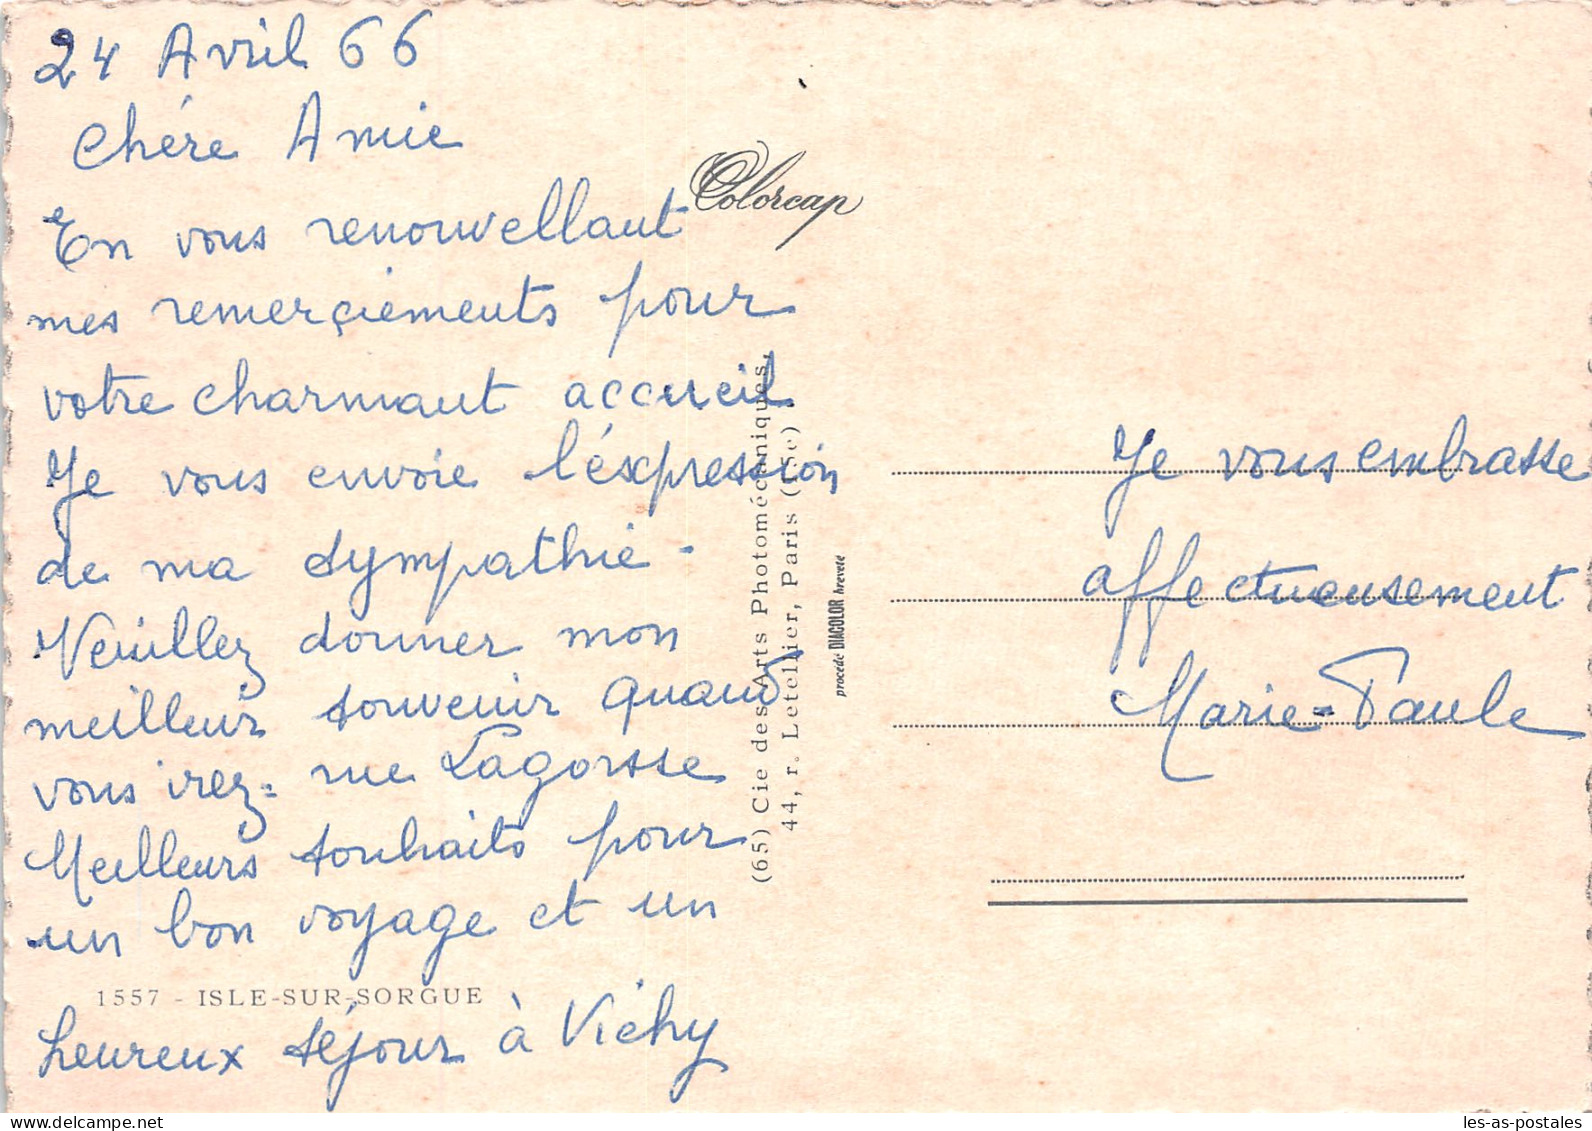 24 Avril 66
Chére Amie
En vous renouvellant
mes remerçiements pour
votre charmant accueil
Je vous envoie l'éxpression
de ma sympathie -
Veuillez donner mon
meilleur souvenir quand
vous irez= rue Lagorsse
Meilleurs souhaits pour
un bon voyage et un
1557 - ISLE-SUR-SORGUE
heureux séjour à Vichy
Colorcap
(65) Cie des Arts Photomécaniques,
44, r. Letellier, Paris (15e)
procédé DIAGOLOR breveté
Je vous embrasse
affectueusement
Marie=Paule
les-as-postales